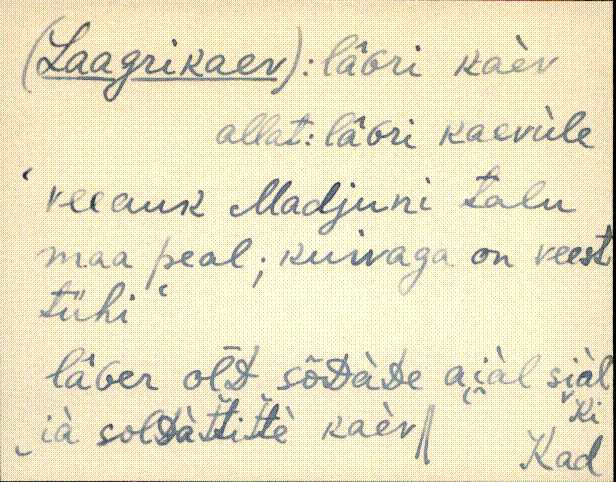 (Laagrikaev): lâʙri kaèv
allat: lâʙri kaevùle
‘veeauk Madjuni talu
maa peal; kuivaga on veest
tühi‘
lâʙer olD sõDàDe ai̯àl siàl
i̯à solDàtìttè kaèv ||
Ki
Kad